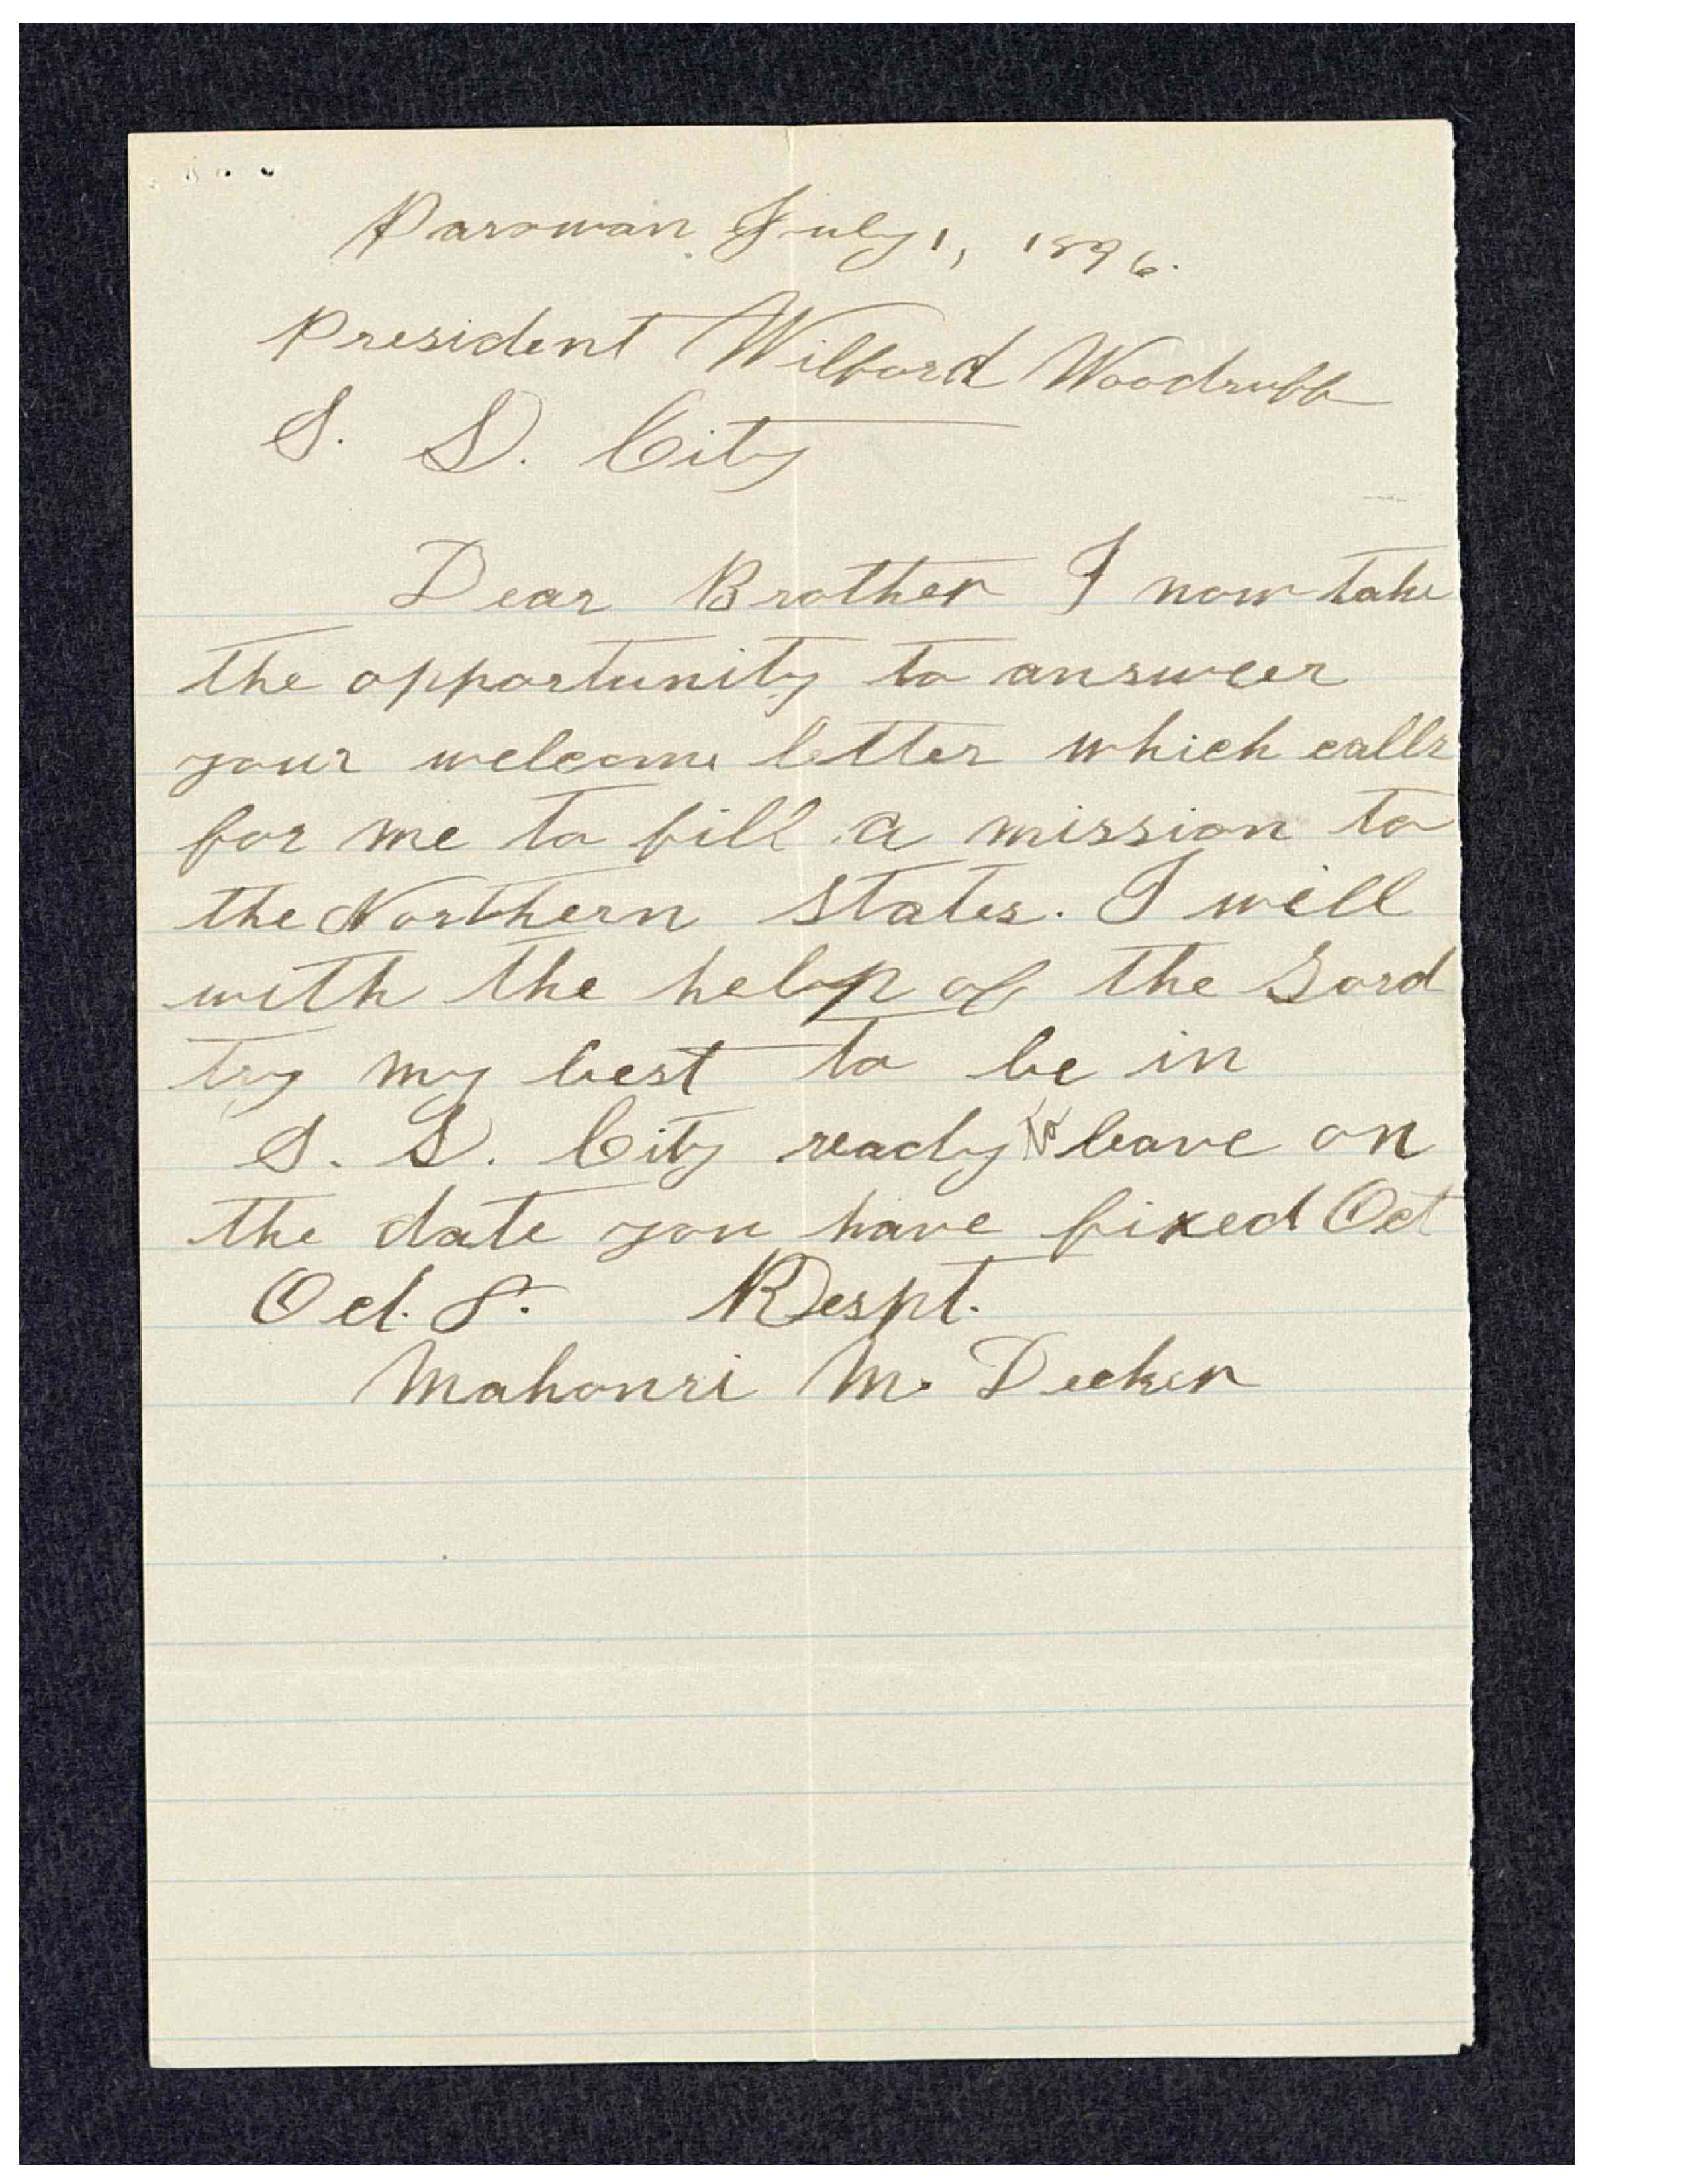 Parowan July 1, 1896.
President Wilford Woodruff
S. L. City
Dear Brother I now take
the opportunity to answeer
your welcome letter which calls
for me to fill a mission to
the Northern States. I will
with the help of the Lord
try my best to be in
S. L. City ready to leave on
the date you have fixed Oct
Oct. 8. Respt.
Mahonri M. Decker